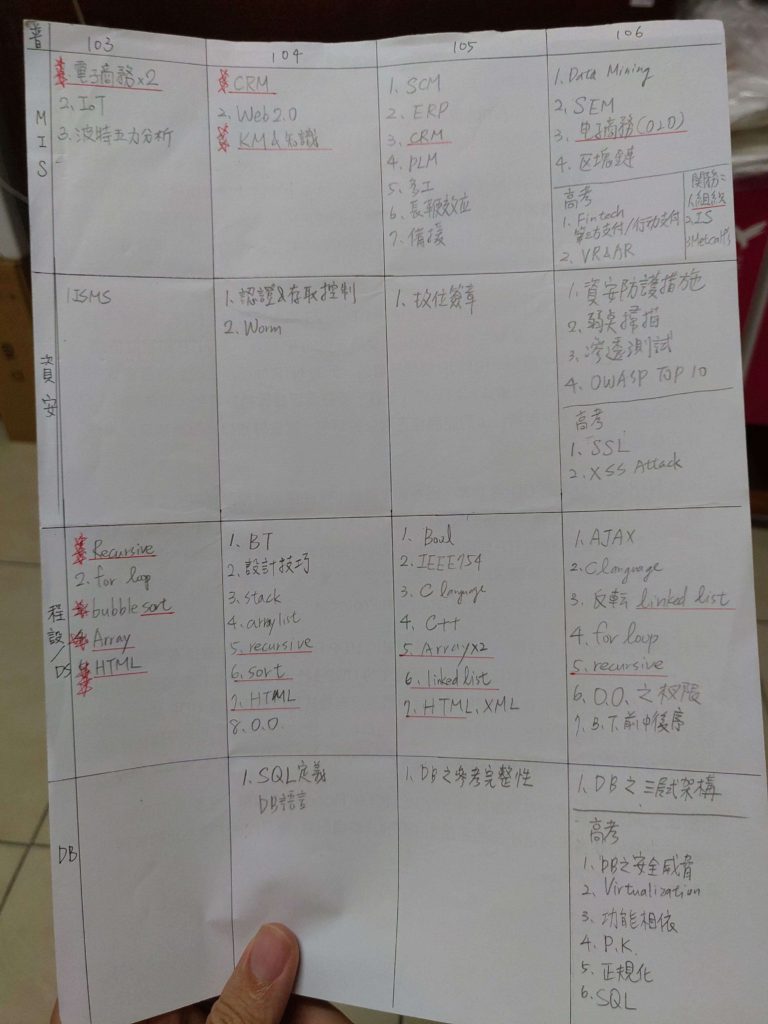 普
103
104
105
106
MIS
1. 電子商務x2
2. IoT
3. 波特五力分析
1. CRM
2. Web 2.0
3. KM & 知識
1. SCM
2. ERP
3. CRM
4. PLM
5. 多工
6. 長鞭效应
7. 備援
1. Data Mining
2. SEM
3. 电子商務(O2O)
4. 区塊鏈
高考
1. Fintech
第三方支付/行动支付
2. VR & AR
関務:
1. 組織
2. IS
3. Metcalf's
資安
1 ISMS
1. 認證&存取控制
2. Worm
1. 数位簽章
1. 資安防護措施
2. 弱点掃描
3. 滲透測試
4. OWASP TOP 10
高考
1. SSL
2. XSS Attack
程設/DS
1. Recursive
2. for loop
3. bubble sort
4. Array
5. HTML
1. BT
2. 設計技巧
3. stack
4. array list
5. recursive
6. sort
7. HTML
8. O.O.
1. Bool
2. IEEE754
3. C language
4. C++
5. Array x2
6. linked list
7. HTML、XML
1. AJAX
2. C language
3. 反転 linked list
4. for loop
5. recursive
6. O.O. 之权限
7. B.T. 前中後序
DB
1. SQL定義
DB語言
1. DB之參考完整性
1. DB之三层式架構
高考
1. DB之安全威脅
2. Virtualization
3. 功能相依
4. P.K.
5. 正規化
6. SQL